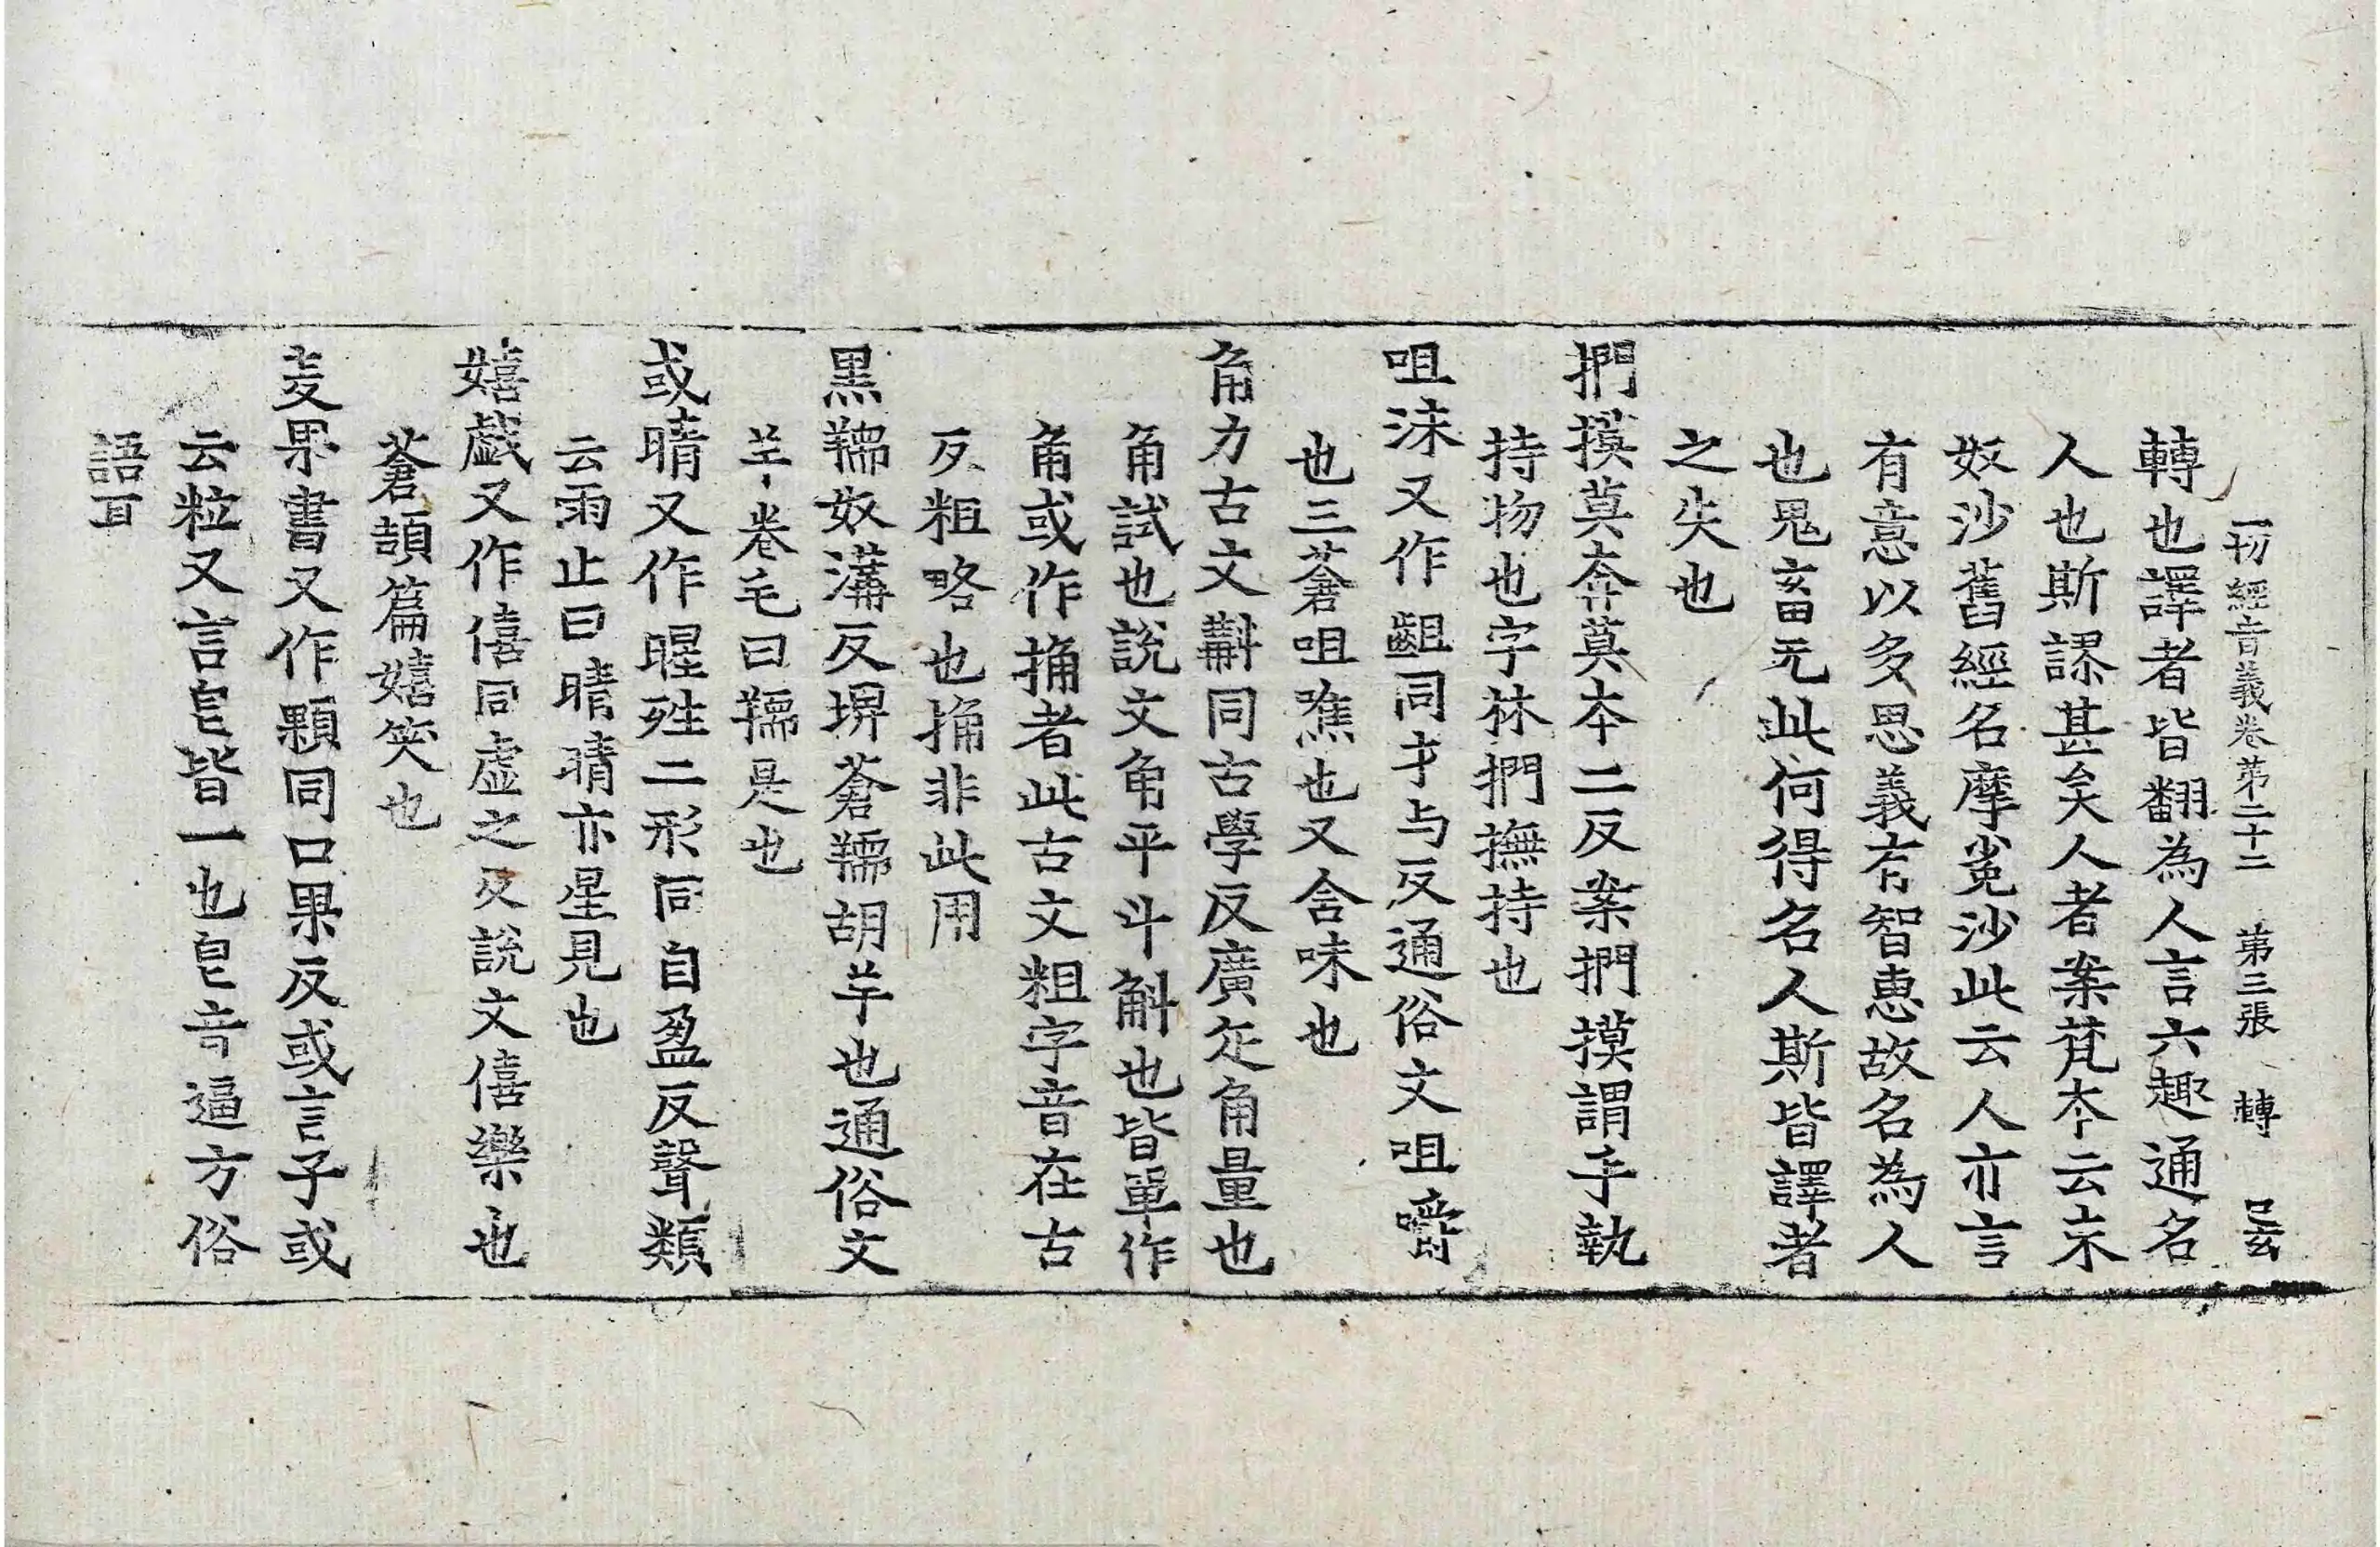 一切經音義卷苐二十二 苐三張 轉 㠯玄
轉也譯者皆翻為人言六趣通名
人也斯謬甚矣人者案梵夲云末
奴沙舊經名摩㝹沙此云人亦言
有意以多思義有智惠故名為人
也鬼畜无此何得名人斯皆譯者
之失也
捫摸莫奔莫夲二反案捫摸謂手執
持物也字林捫撫持也
咀沬又作齟同才与反通俗文咀嚼
也三蒼咀噍也又含味也
角力古文斠同古學反廣疋角量也
角試也說文角平斗斛也皆單作
角或作捔者此古文粗字音在古
反粗略也捔非此用
黒羺奴溝反埤蒼羺胡羊也通俗文
羊卷毛曰羺是也
或晴又作暒殅二形同自盈反聲類
云雨止曰晴晴亦星見也
嬉戲又作僖同虛之反說文僖樂也
蒼頡篇嬉笑也
麦果書又作顆同口果反或言子或
云粒又言皀皆一也皀音逼方俗
語耳